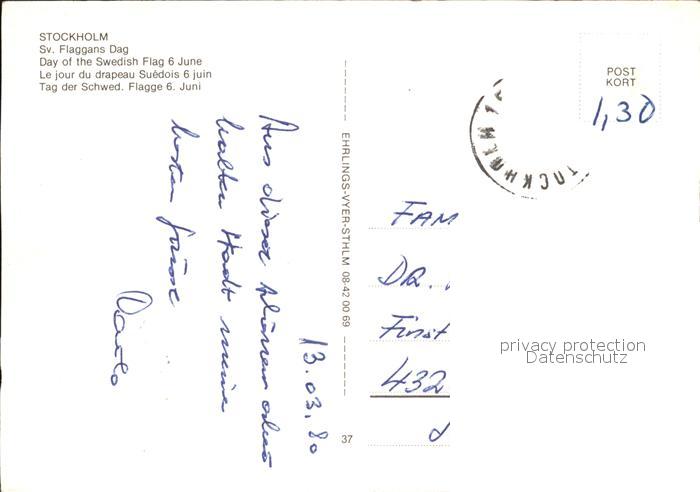 STOCKHOLM
Sv. Flaggans Dag
Day of the Swedish Flag 6 June
Le jour du drapeau Suédois 6 juin
Tag der Schwed. Flagge 6. Juni
13.03.80
Aus dieser
kalten Stadt meine
besten Grüsse
EHRLINGS-VYER-STHLM 08-42 00 69
37
POST
KORT
1,30
STOCKHOLM
FAM
DR.
First
432
d
privacy protection
Datenschutz